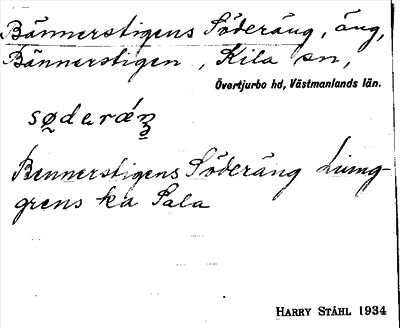 Bännerstigens Söderäng, äng,
Bännerstigen, Kila sn,
Övertjurbo hd, Västmanlands län.
sø̰daræ̀ŋ
Bennerstigens Söderäng Ljung-
grens ka Sala
HARRY STÅHL 1934